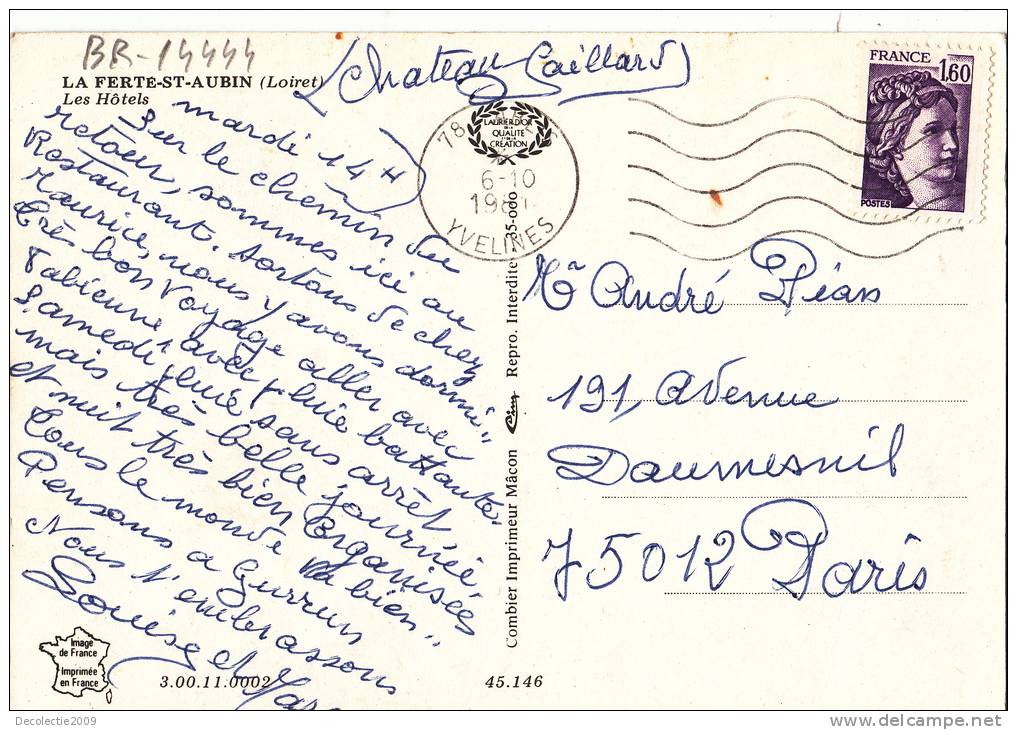 BR-14444
LA FERTÉ-ST-AUBIN (Loiret)
Les Hôtels
(Chateau Gaillard)
mardi 14 H
Sur le chemin du
retour, sommes ici au
Restaurant. Sortons de chez
Maurice, nous y avons dormi,,
très bon voyage aller avec
Fabienne avec pluie battante.
Samedi pluie sans arrêt
mais très belle journée,
et nuit très bien organisées
Tous le monde va bien,,
Pensons a
Nous t'embrassons
Louise et
LAURIER D'OR
DE LA
QUALITÉ
CRÉATION
78
6-10
YVELINES
FRANCE 1,60
POSTES
Mr André Péan
191, Avenue
Daumesnil
75012 Paris
Combier Imprimeur Mâcon Cim Repro. Interdite 35-000
Image
de France
Imprimée
en France
3.00.11.0002
45.146
Decolectie2009
delcampe.net